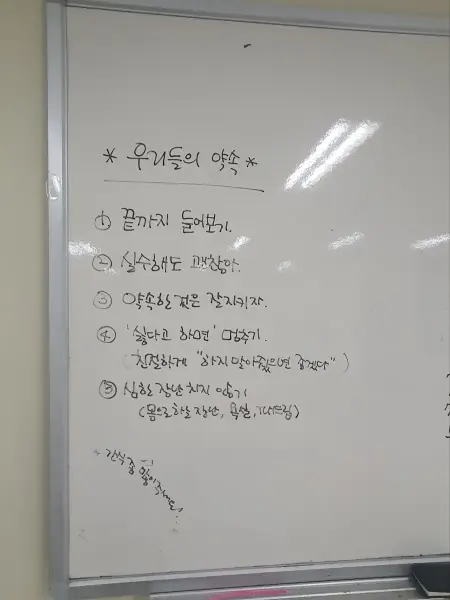 * 우리들의 약속 *
① 끝까지 들어보기.
② 실수해도 괜찮아.
③ 약속한 것은 잘지키자.
④ '싫다고 하면' 멈추기.
(친절하게 "하지 말아줬으면 좋겠다")
⑤ 심한 장난 치지 않기
(몸으로하는 장난, 욕설,
* 간식 좀 많이